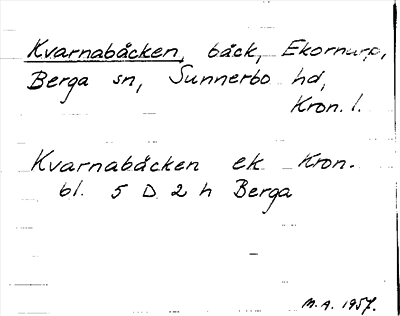 Kvarnabäcken, bäck, Ekornarp,
Berga sn, Sunnerbo hd,
Kron. l.
Kvarnabäcken ek Kron.
bl. 5 D 2 h Berga
M.A. 1957.